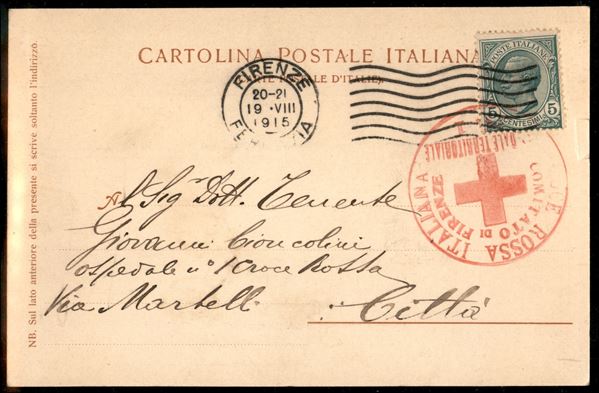 CARTOLINA POSTALE ITALIANA
D'ITALIE).
POSTE ITALIANE
5 5
CENTESIMI
FIRENZE
20-21
19·VIII
1915
FERROVIA
CROCE ROSSA ITALIANA
COMITATO DI FIRENZE
TERRITORIALE
NB. Sul lato anteriore della presente si scrive soltanto l'indirizzo.
Al Sigr Dott. Tenente
Giovanni Cioncolini
ospedale n° 1 Croce Rossa
Via Martelli
Città